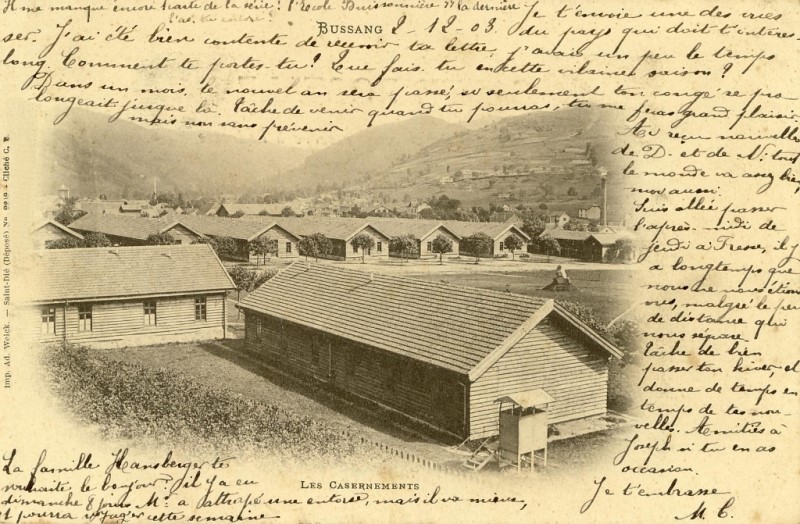 Il me manque encore 1 carte de la série : l'Ecole Buissonnière et la dernière
l'as-tu encore ?
BUSSANG
2-12-03.
Je t'envoie une des vues
du pays qui doit t'intéres-
ser. J'ai été bien contente de recevoir ta lettre, j'avais un peu le temps
long. Comment te portes-tu ? Que fais-tu en cette vilaine saison ?
Dans un mois, le nouvel an sera passé, si seulement ton congé se pro
longeait jusque là. Tâche de venir quand tu pourras, tu me feras grand plaisir
mais non sans prévenir
Ai reçu nouvelles
de D. et de N. tout
le monde va assez bien,
moi aussi.
Suis allée passer
l'après-midi de
jeudi à Fresse, il y
a longtemps que
nous ne nous étions
vues, malgré le peu
de distance qui
nous sépare
Tâche de bien
passer ton hiver, et
donne de temps en
temps de tes nou-
velles. Amitiés à
Joseph si tu en as
occasion.
Je t'embrasse
M C.
La famille Hansberger te
souhaite le bonjour. il y a eu
dimanche 8 jours Mr a attrapé une entorse, mais il va mieux,
et pourra voyager cette semaine
LES CASERNEMENTS
Imp. Ad. Weick. — Saint-Dié (Déposé) No. — Cliché C.